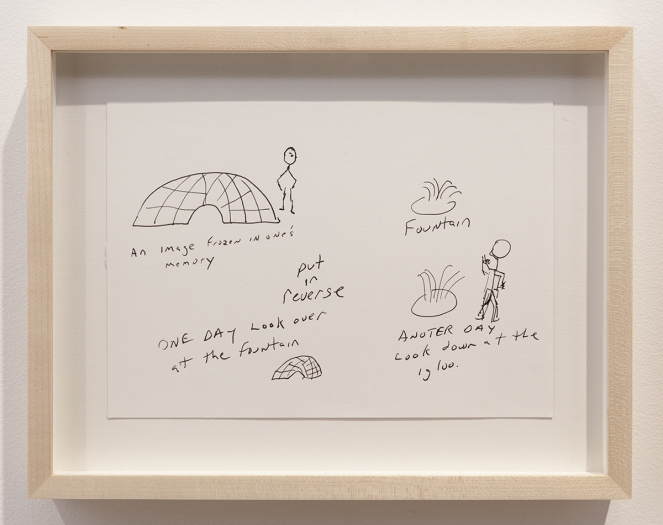 An image frozen in one's
memory
put
in
reverse
ONE DAY Look over
at the fountain
Fountain
ANOTER DAY
Look down at the
igloo.